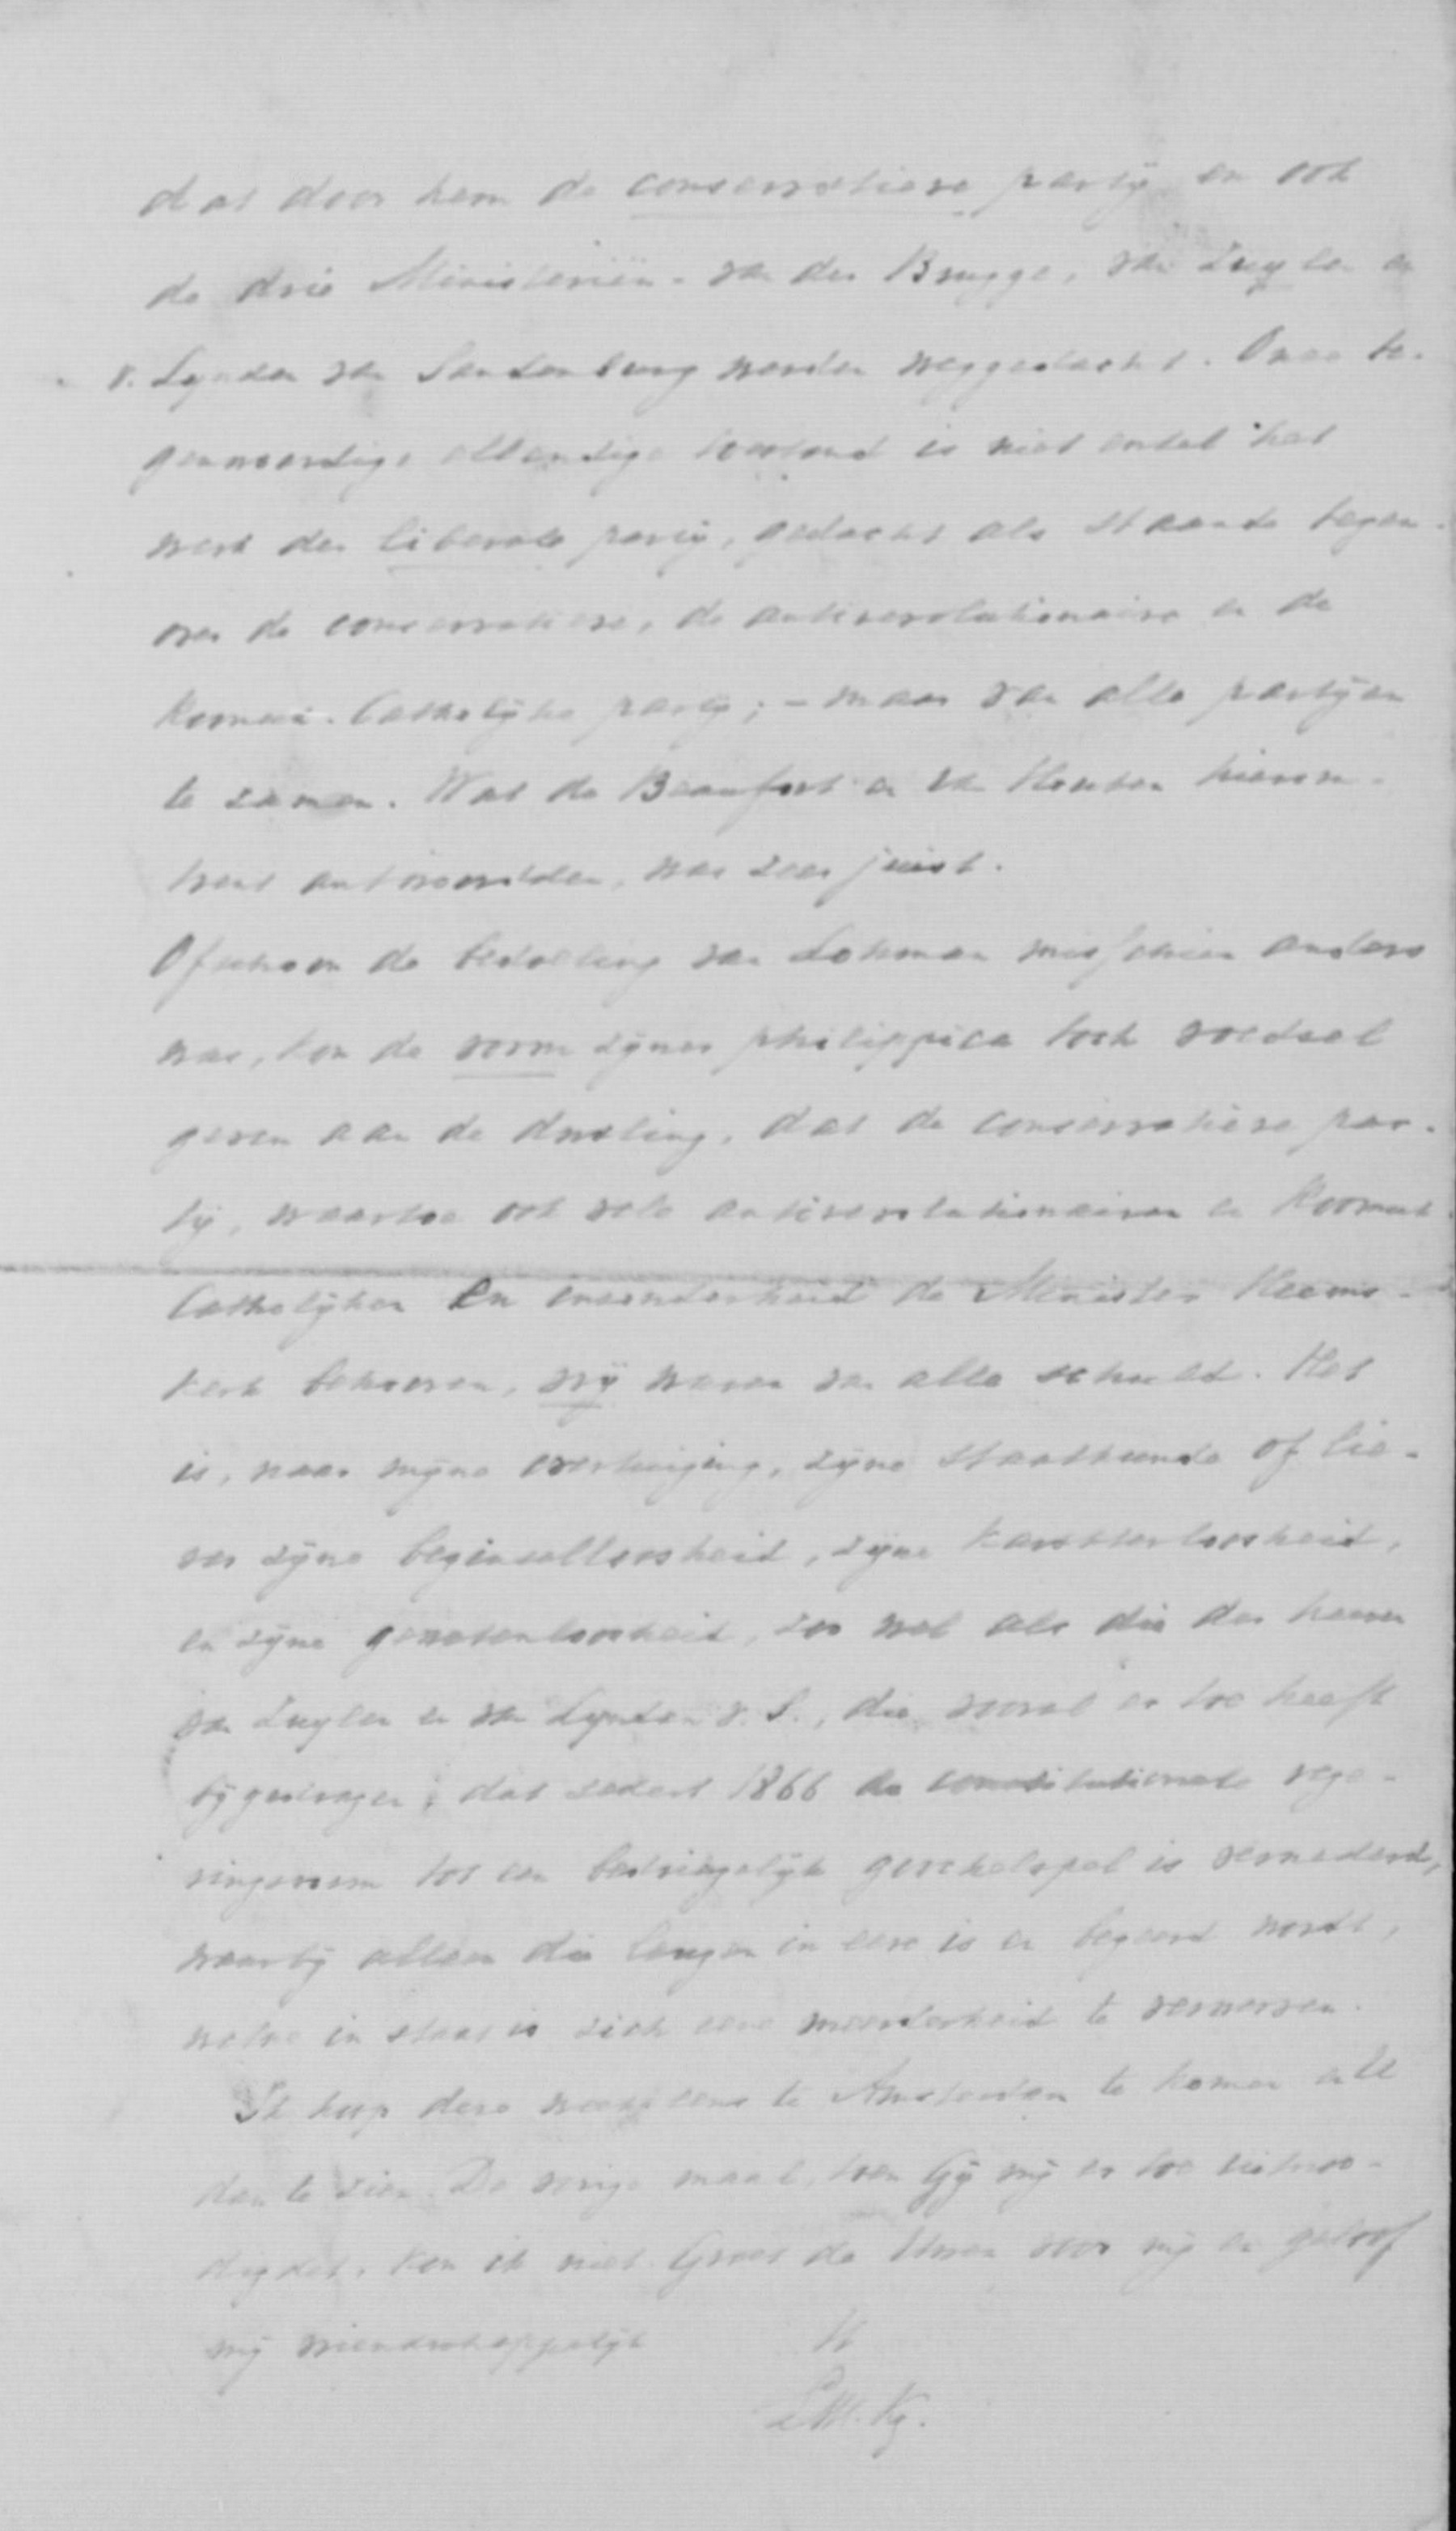 dat door hem de conservatieve partij en ook
de drie Ministeriën - van der Brugge, van Zuylen en
v. Lynden van Sandenburg worden weggedacht. Onze te-
genwoordige ellendige toestand is niet enkel het
werk der liberale partij, gedacht als staande tegen-
over de conservatieve, de antirevolutionaire en de
Roomsch-Catholijke partij; - maar van alle partijen
te zamen. Wat de Beaufort en van Houten hierom-
trent antwoordden, was zeer juist.
Ofschoon de bedoeling van Lohman misschien anders
was, kon de vorm zijner philippica toch voedsel
geven aan de dwaling, dat de conservatieve par-
tij, waartoe ook vele antirevolutionairen en Roomsch
Catholijken en inzonderheid de Minister Heems-
kerk behooren, vrij waren van alle schuld. Het
is, naar mijne overtuiging, zijne staatkunde of lie-
ver zijne beginselloosheid, zijne karakterloosheid,
en zijne gewetenloosheid, zoo wel als die der heeren
van Zuylen en van Lynden v. S., die vooral er toe heeft
bijgedragen, dat sedert 1866 de constitutionele rege-
ringsvorm tot een bedriegelijk goochelspel is vernederd,
waarbij alleen die leugen in eere is en begeerd wordt,
welke in staat is zich eene meerderheid te verwerven.
Ik hoop deze week eens te Amsterdam te komen en U
dan te zien. De vorige maal, toen Gij mij er toe uitnoo-
digdet, kon ik niet. Groet de Uwen voor mij en geloof
mij vriendschappelijk